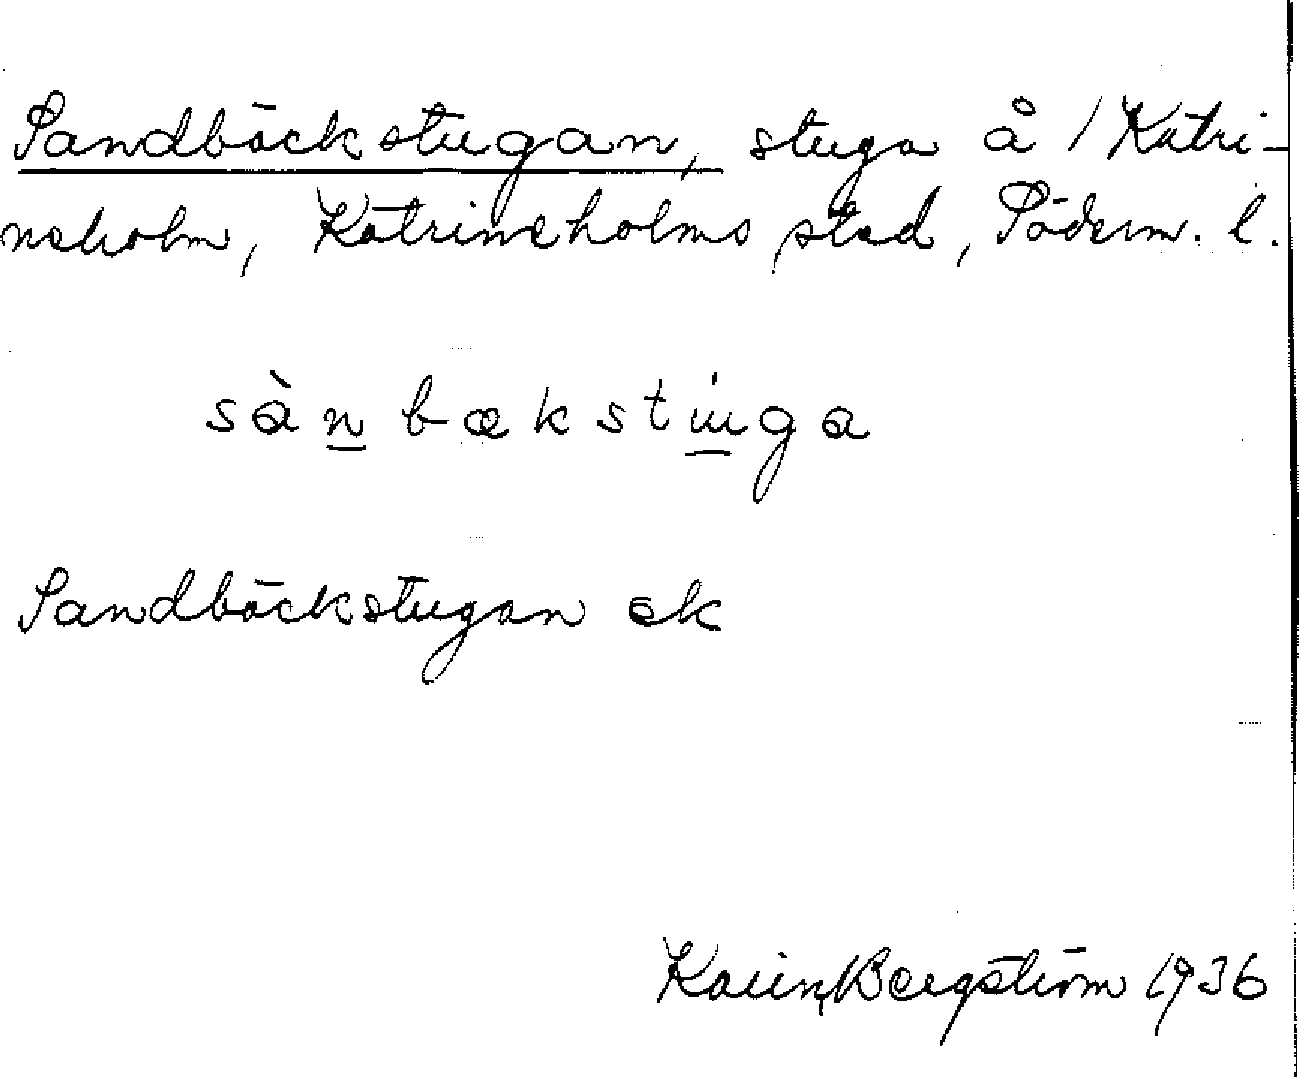 Sandbäckstugan, stuga å 1 Katri-
neholm, Katrineholms stad, Söderm. l.
sàn bækstu̇ga
Sandbäckstugan ek
Karin Bergström 1936